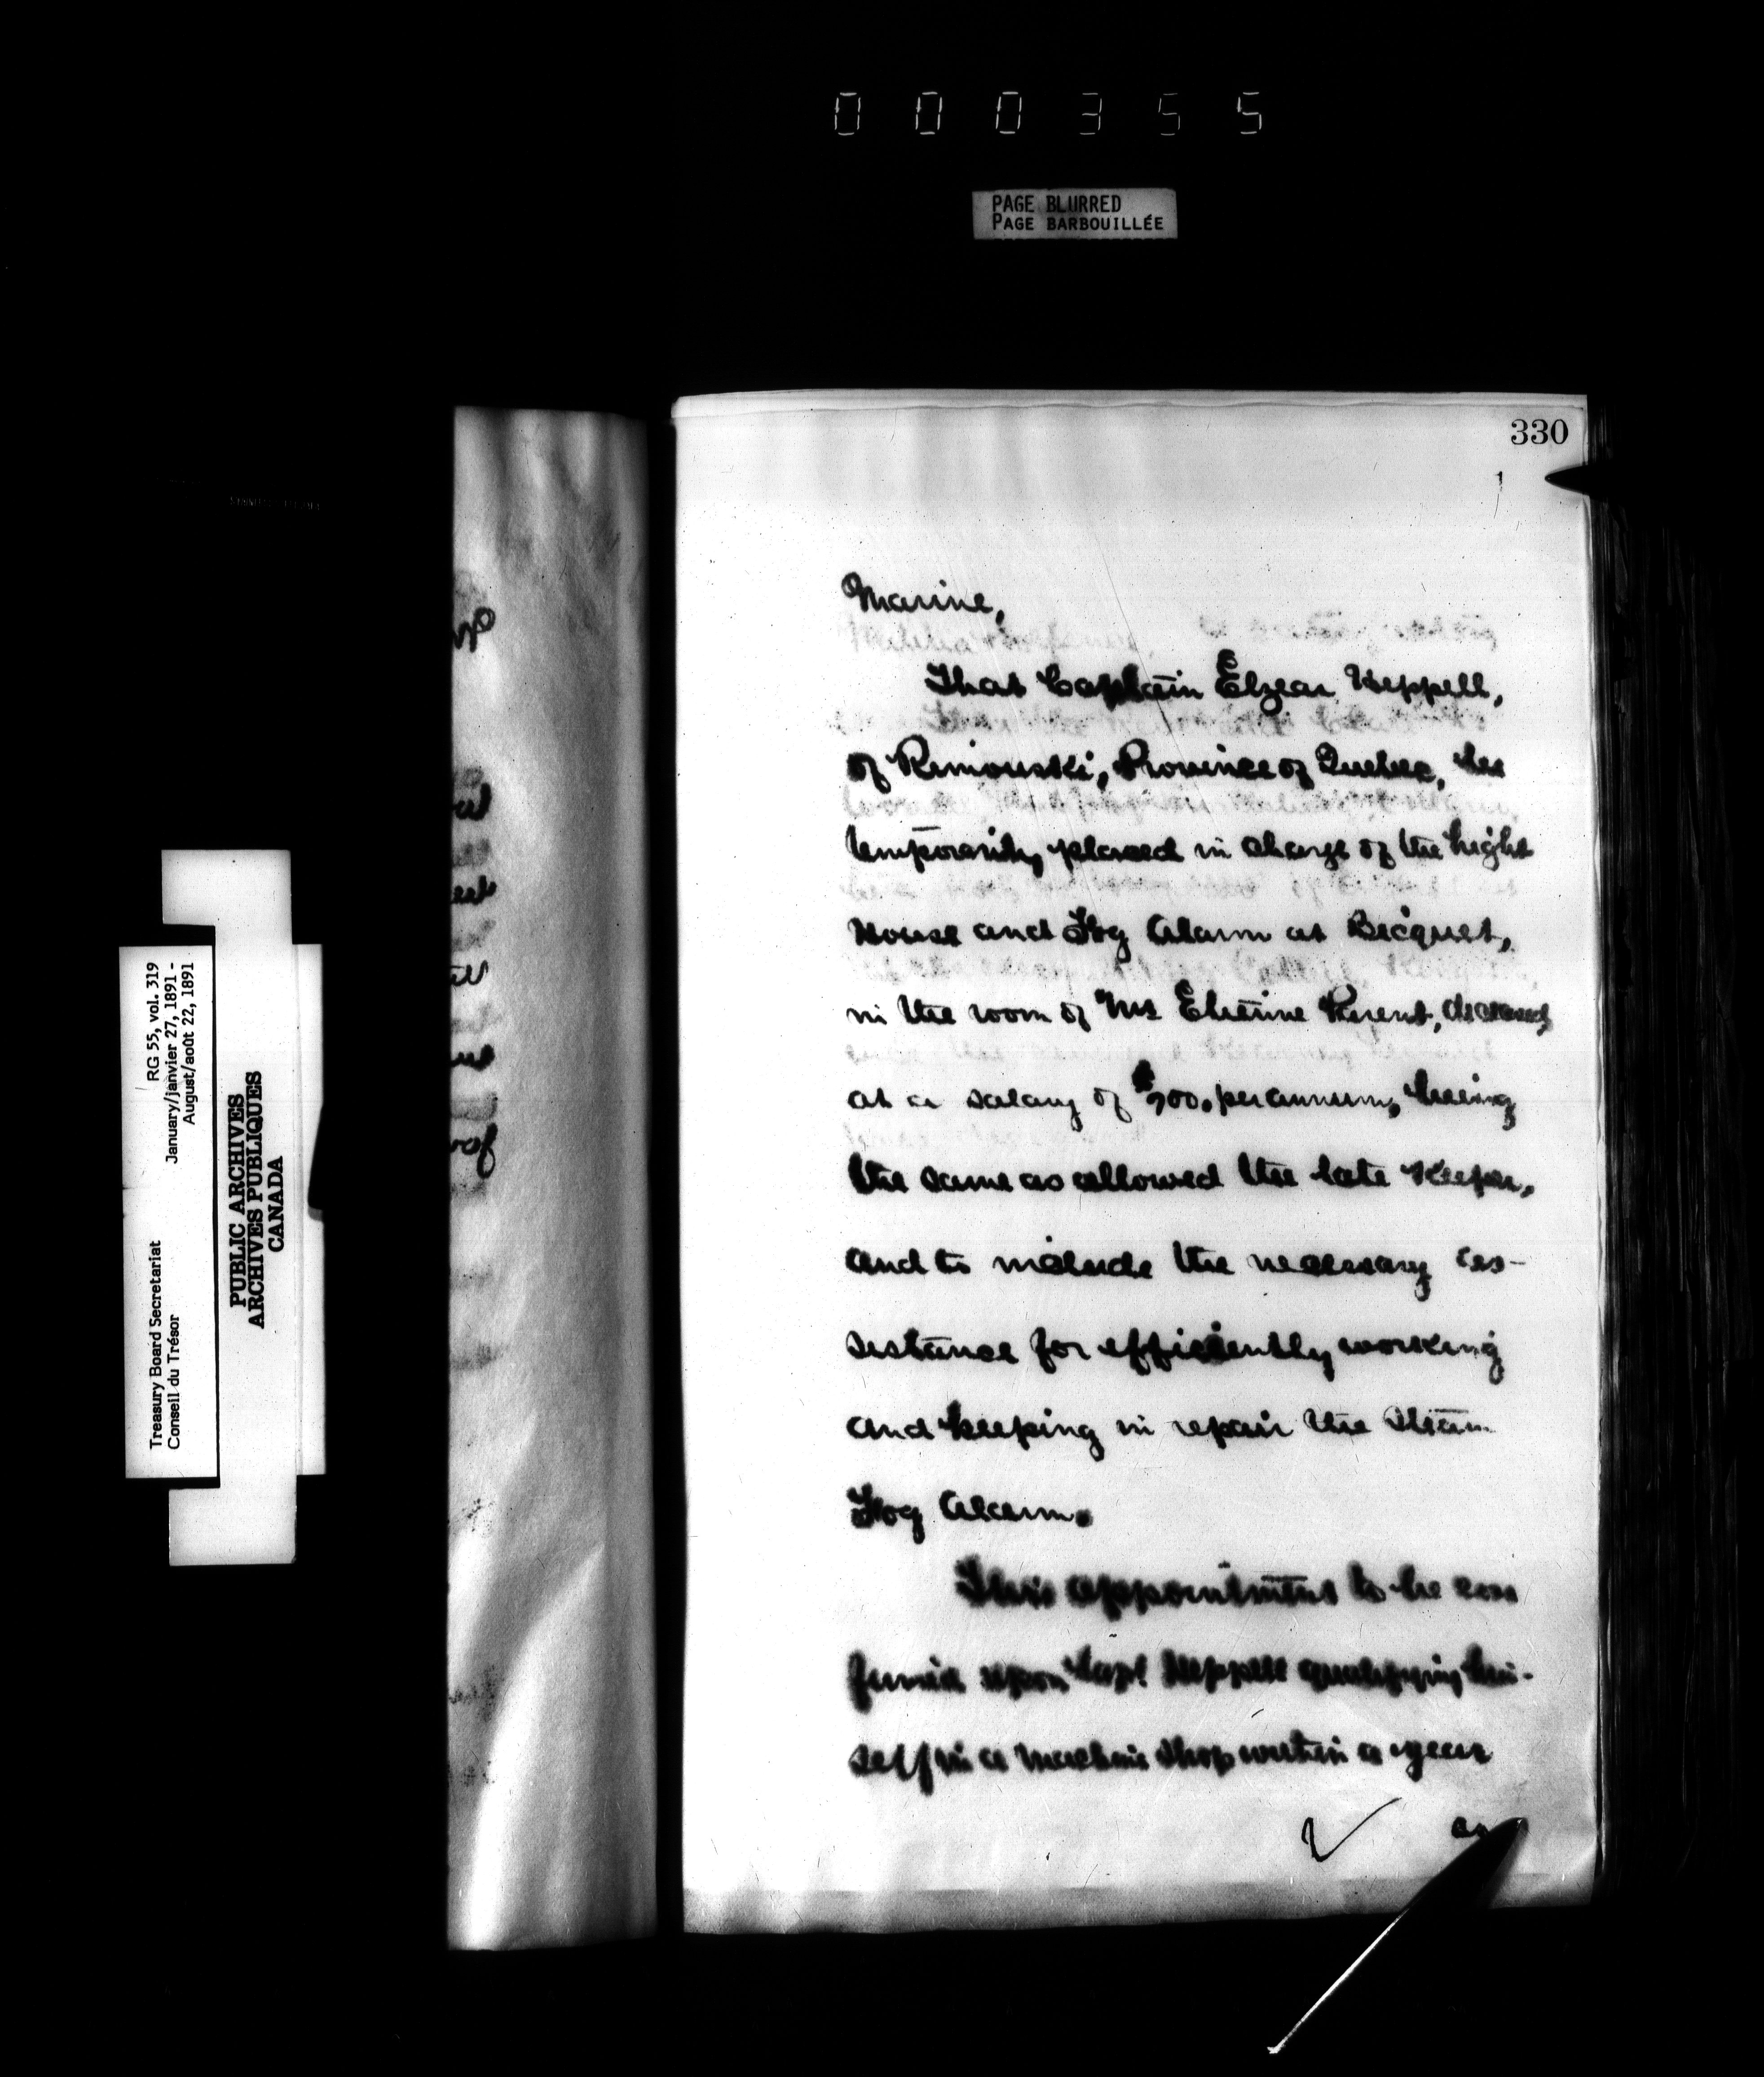 000355
PAGE BLURRED
PAGE BARBOUILLÉE
330
1
Marine,
That Captain Elzear Heppell,
of Rimouski, Province of Quebec, be
temporarily placed in charge of the Light
House and Fog Alarm at Bicquet,
in the room of Mr Etienne Parent, deceased,
at a salary of $900. per annum, being
the same as allowed the late Keeper,
and to include the necessary as-
sistance for efficiently working
and keeping in repair the Steam
Fog Alarm.
This appointment to be con
firmed upon Capt Heppell qualifying him-
self in a machine shop within a year
as
Treasury Board Secretariat RG 55, vol. 319
Conseil du Trésor January/janvier 27, 1891 -
August/août 22, 1891
PUBLIC ARCHIVES
ARCHIVES PUBLIQUES
CANADA